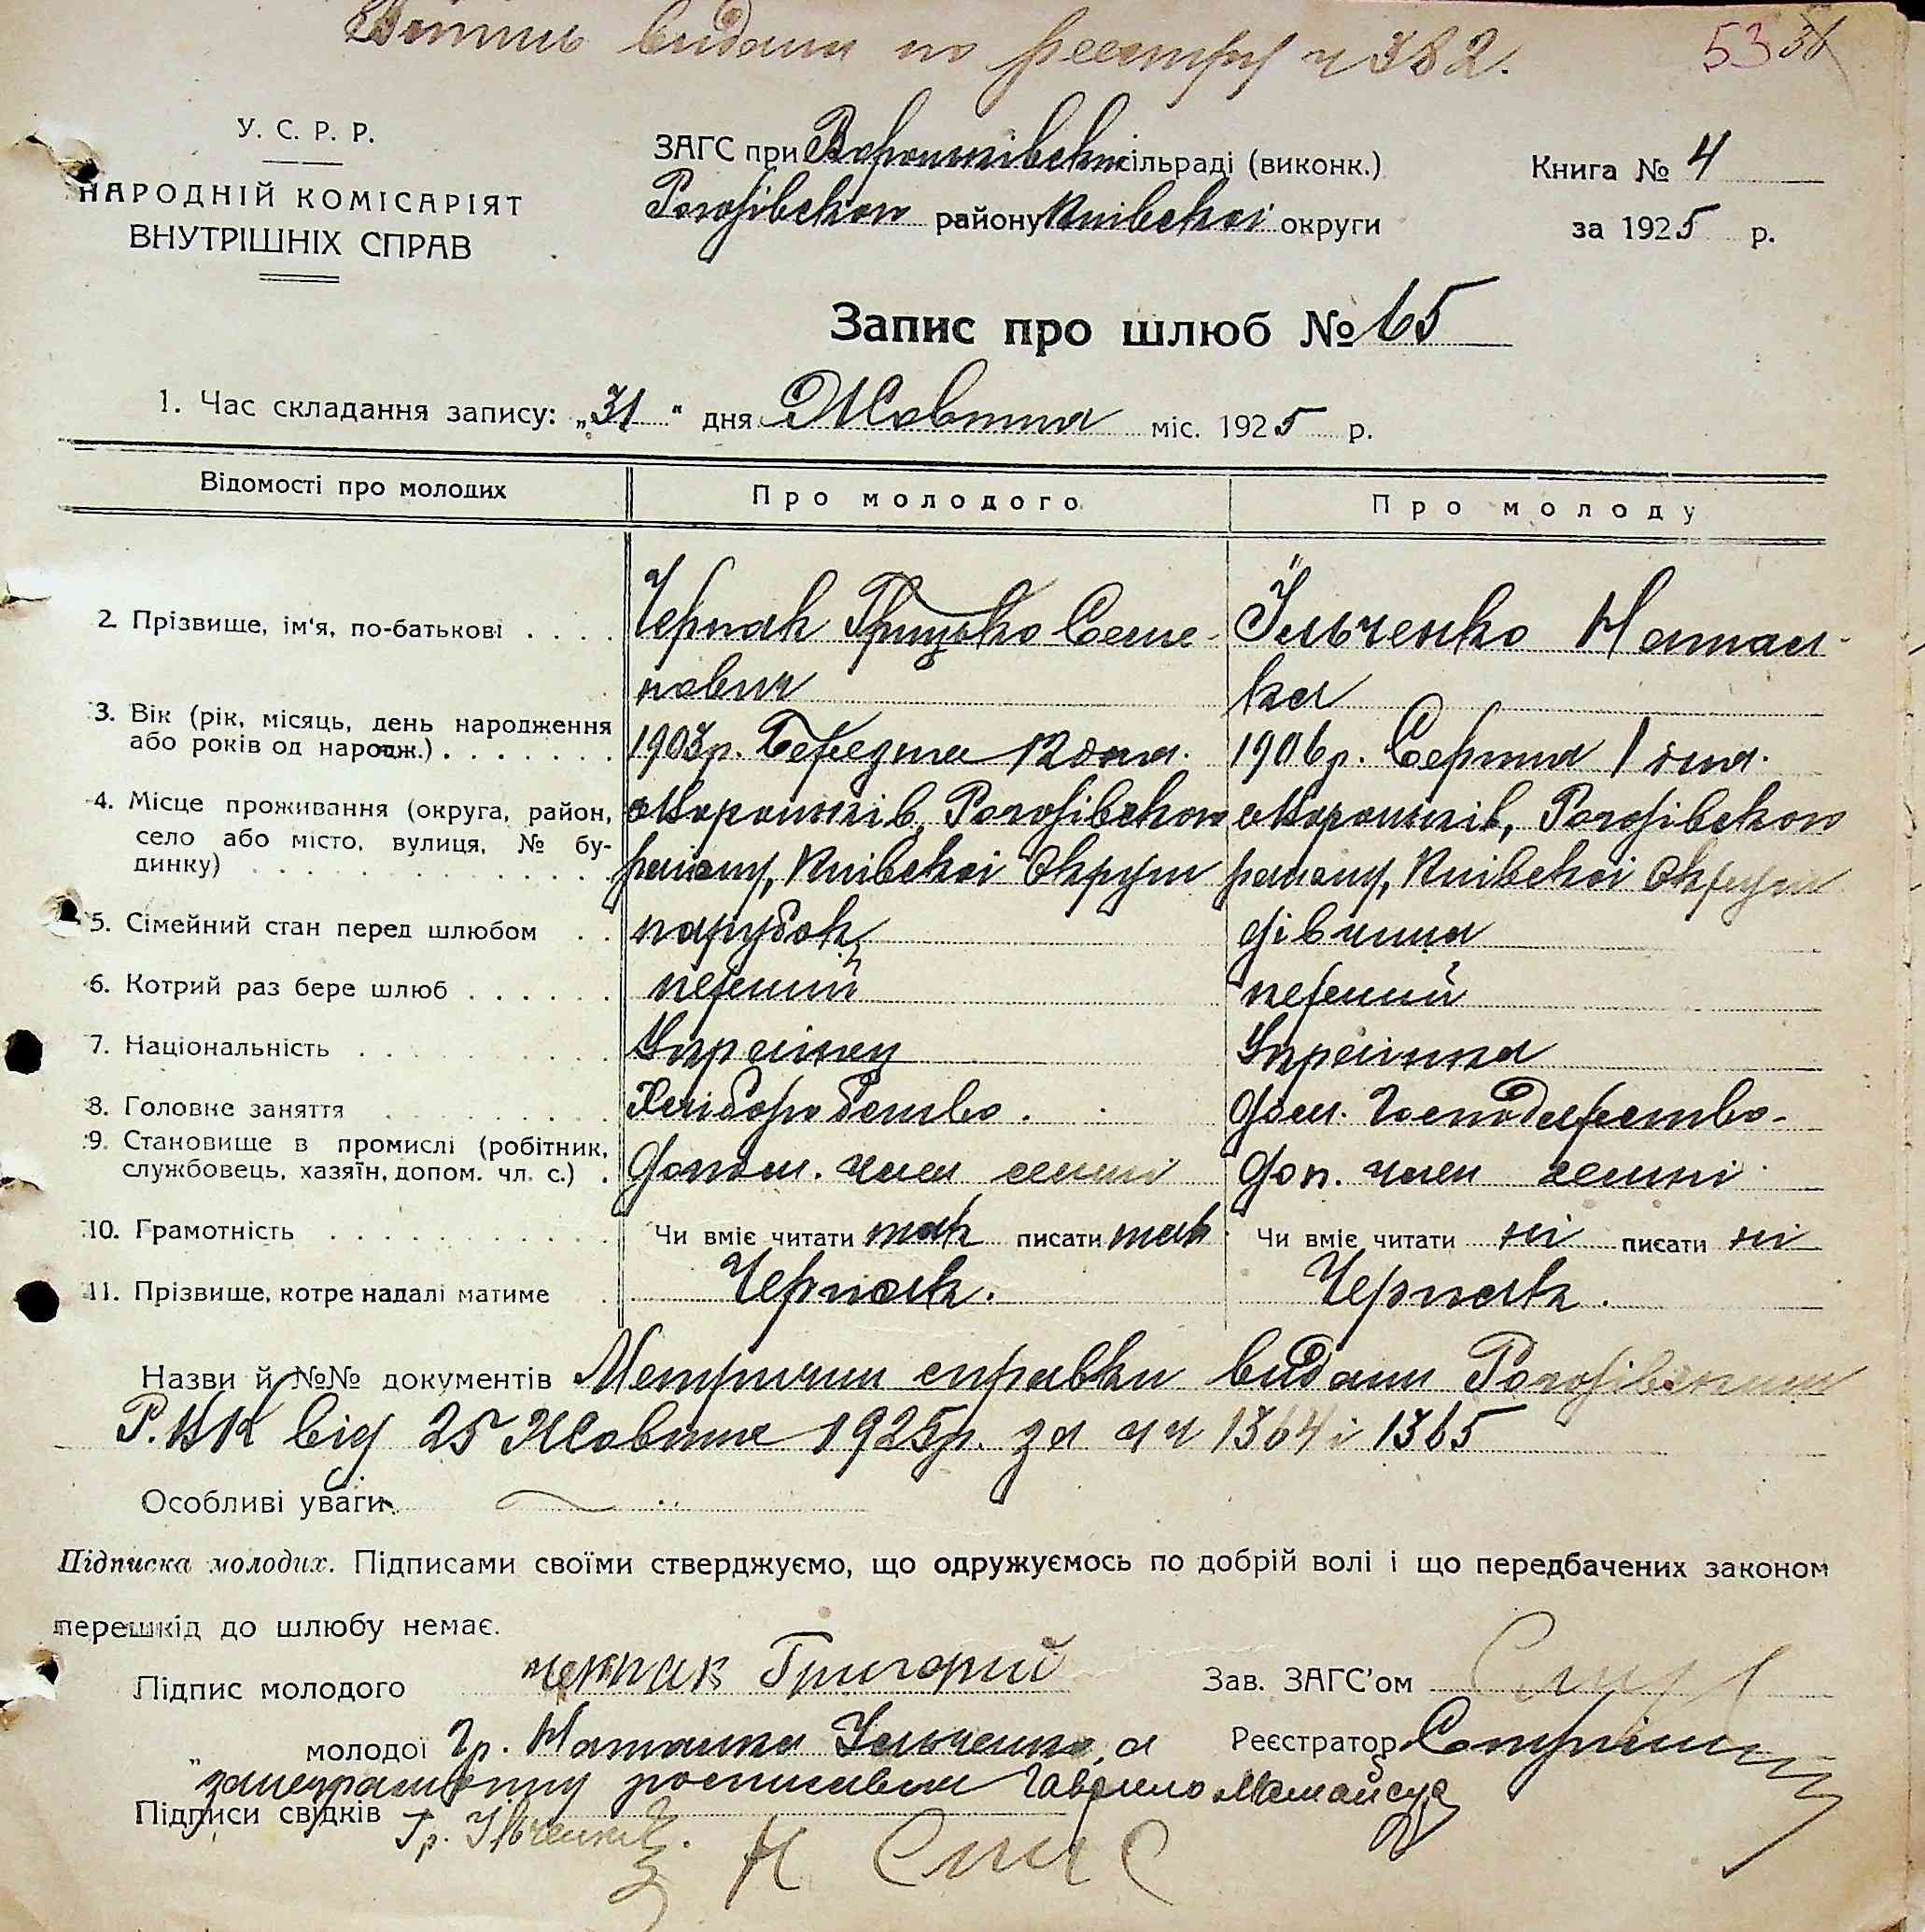 видани по реєстру ч 382. 53 31
У. С. Р. Р.
НАРОДНІЙ КОМІСАРІЯТ
ВНУТРІШНІХ СПРАВ
ЗАГС при Вороньківські сільраді (виконк.)
Рогозівсково району Київскої округи
Книга № 4
за 1925 р.
Запис про шлюб № 65
1. Час складання запису: „31" дня Жовтня міс. 1925 р.
Відомості про молодих Про молодого Про молоду
2. Прізвище, ім'я, по-батькові . . . . Черняк Грицько Семе- Ільченко Натал-
нович ка
3. Вік (рік, місяць, день народження або років од народж.) . . . . . . . 1903р. Березня 12 дня. 1906р. Серпня 1 дня.
4. Місце проживання (округа, район, село або місто, вулиця, № будинку) . . . с Вороньків, Рогозівсково с Вороньків, Рогозівсково
району, Київскої Округи району, Київскої Округи
5. Сімейний стан перед шлюбом . . парубок дівчина
6. Котрий раз бере шлюб . . . . . . перший перший
7. Національність . . . . . . . . . Українец Українка
8. Головне заняття . . . . . . . . Хліборобство. Дом. Господарство.
9. Становище в промислі (робітник, службовець, хазяїн, допом. чл. с.) . Допом. член семиї Доп. член семиї
10. Грамотність . . . . . . . . . . . Чи вміє читати так писати так Чи вміє читати ні писати ні
11. Прізвище, котре надалі матиме . Черняк. Черняк.
Назви й №№ документів Метричии справки видани Рогозівским
Р.ВК від 25 Жовтня 1925р. за чч 1364 і 1365
Особливі уваги
Підписка молодих. Підписами своїми стверджуємо, що одружуємось по добрій волі і що передбачених законом
перешкід до шлюбу немає.
Підпис молодого черпак Григорий Зав. ЗАГС'ом
„ молодої Гр. Наталка Ільченко, а Реєстратор
за неграмотну росписавси Гаврило
Підписи свідків Гр. Ільченко